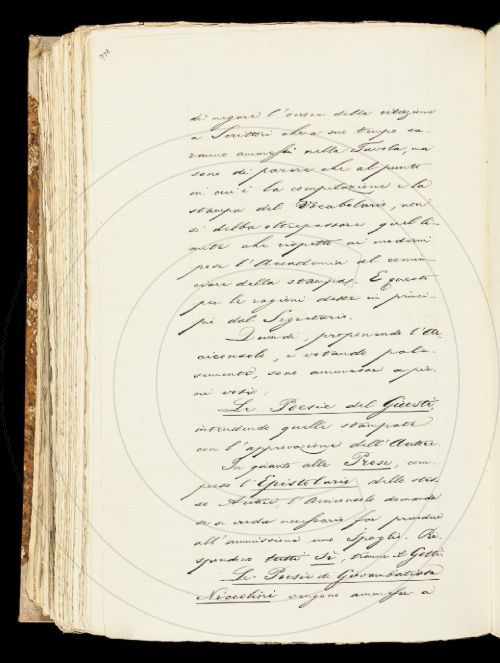 978
di negare l'onore della citazione
a Scrittori che a suo tempo sa-
ranno ammessi nella Tavola, ma
sono di parere che al punto
in cui è la compilazione e la
stampa del Vocabolario, non
si debba oltrepassare quel li-
mite che rispetto ai moderni
pose l'Accademia al comin-
ciare della stampa. E questo
per le ragioni dette in princi-
pio dal Segretario.
Quindi, proponendo l'Ar-
ciconsolo, e votando pale-
semente, sono ammesse a pie-
ni voti:
Le Poesie del Giusti,
intendendo quelle stampate
con l'approvazione dell'Autore.
In quanto alle Prose, com-
preso l'Epistolario dello stes-
so Autore, l'Arciconsolo domanda
se si creda necessario far precedere
all'ammissione uno Spoglio. Ri-
spondono tutti Sì, tranne il Gotti.
Le Poesie di Giovambatista
Niccolini vengono ammesse a